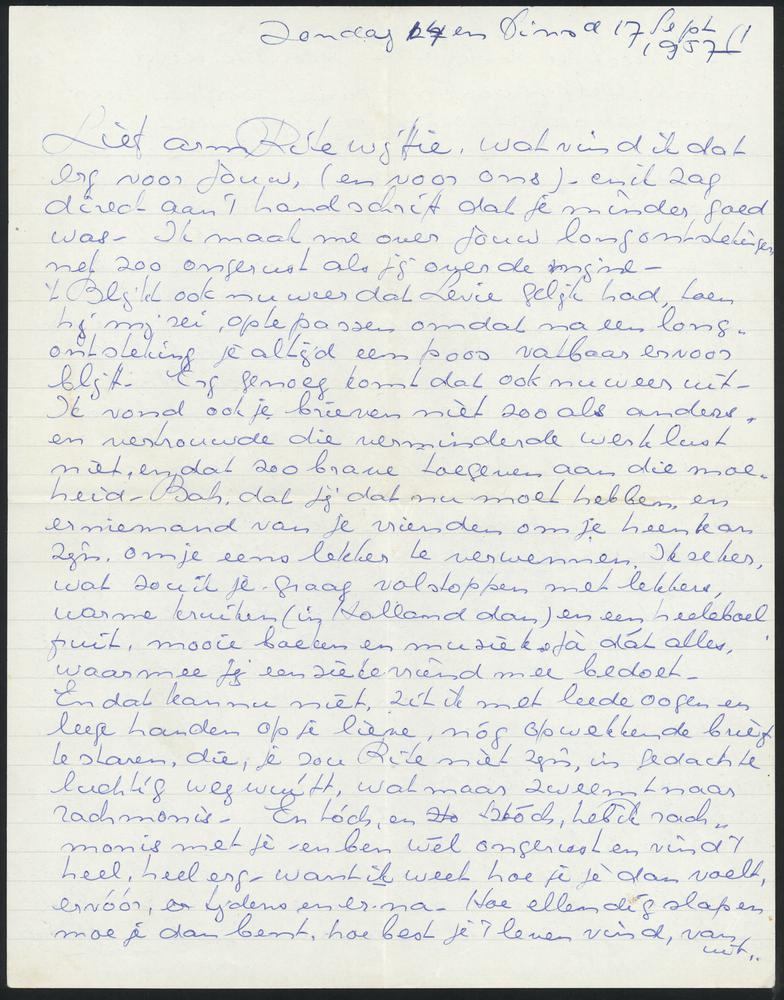 Zondag en Dinsd 17 Sept
1957
Lief arm Rite wijffie, wat vind ik dat
erg voor jouw, (en voor ons) - en ik zag
direct aan 't handschrift dat je minder goed
was - Ik maak me over jouw longontstekingen
net zoo ongerust als jij over de mijne -
't Blijkt ook nu weer dat Levie gelijk had, toen
hij mij zei, op te passen omdat na een long-
ontsteking je altijd een poos vatbaar ervoor
blijft - Erg genoeg komt dat ook nu weer uit -
Ik vond ook je brieven niet zoo als anders,
en vertrouwde die verminderde werklust
niet, en dat zoo brave toegeven aan die moe-
heid - Bah, dat jij dat nu moet hebben, en
er niemand van je vrienden om je heen kan
zijn, om je eens lekker te verwennen. Ik zeker,
wat zou ik je graag volstoppen met lekkers,
warme kruiken (in Holland dan) en een heeleboel
fruit, mooie boeken en muziek, ja dát alles,
waarmee jij een zieke vriend mee bedoet -
En dat kan nu niet, zit ik met leede oogen en
leege handen op je lieve, nóg opwekkende brief
te staren, die, je zou Rite niet zijn, in gedachte
luchtig weg wuift, wat maar zweemt naar
rachmonis - En tóch, en tóch, heb ik rach-
monis met je - en ben wél ongerust en vind 't
heel, heel erg - want ik weet hoe je je dan voelt,
ervóór, er tijdens en er-na - Hoe ellendig slap en
moe je dan bent, hoe best je 't leven vind, van
uit..